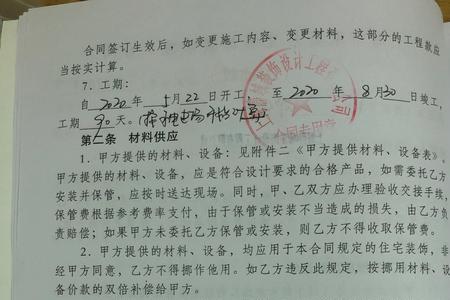 合同签订生效后，如变更施工内容、变更材料，这部分的工程款应
当按实计算。
7．工期：
自 2020 年 5 月 22 日开工，至 2020 年 8 月 30 日竣工，
工期 90 天。
第二条 材料供应
1．甲方提供的材料、设备：见附件二《甲方提供材料、设备表》。
甲方提供的材料、设备，应是符合设计要求的合格产品，如需委托乙方
安装并保管，应按时送达现场。同时，甲、乙双方应办理验收交接手续，
保管费根据参考费率支付，由于保管或安装不当造成的损失，由乙方负
责赔偿；如果甲方未委托乙方保管或安装，则乙方不得收取保管费。
2．甲方提供的材料、设备，均应用于本合同规定的住宅装饰，非
经甲方同意，乙方不得挪作他用。如乙方违反此规定，按挪用材料、设
备价款的双倍补偿给甲方。
装饰设计工程